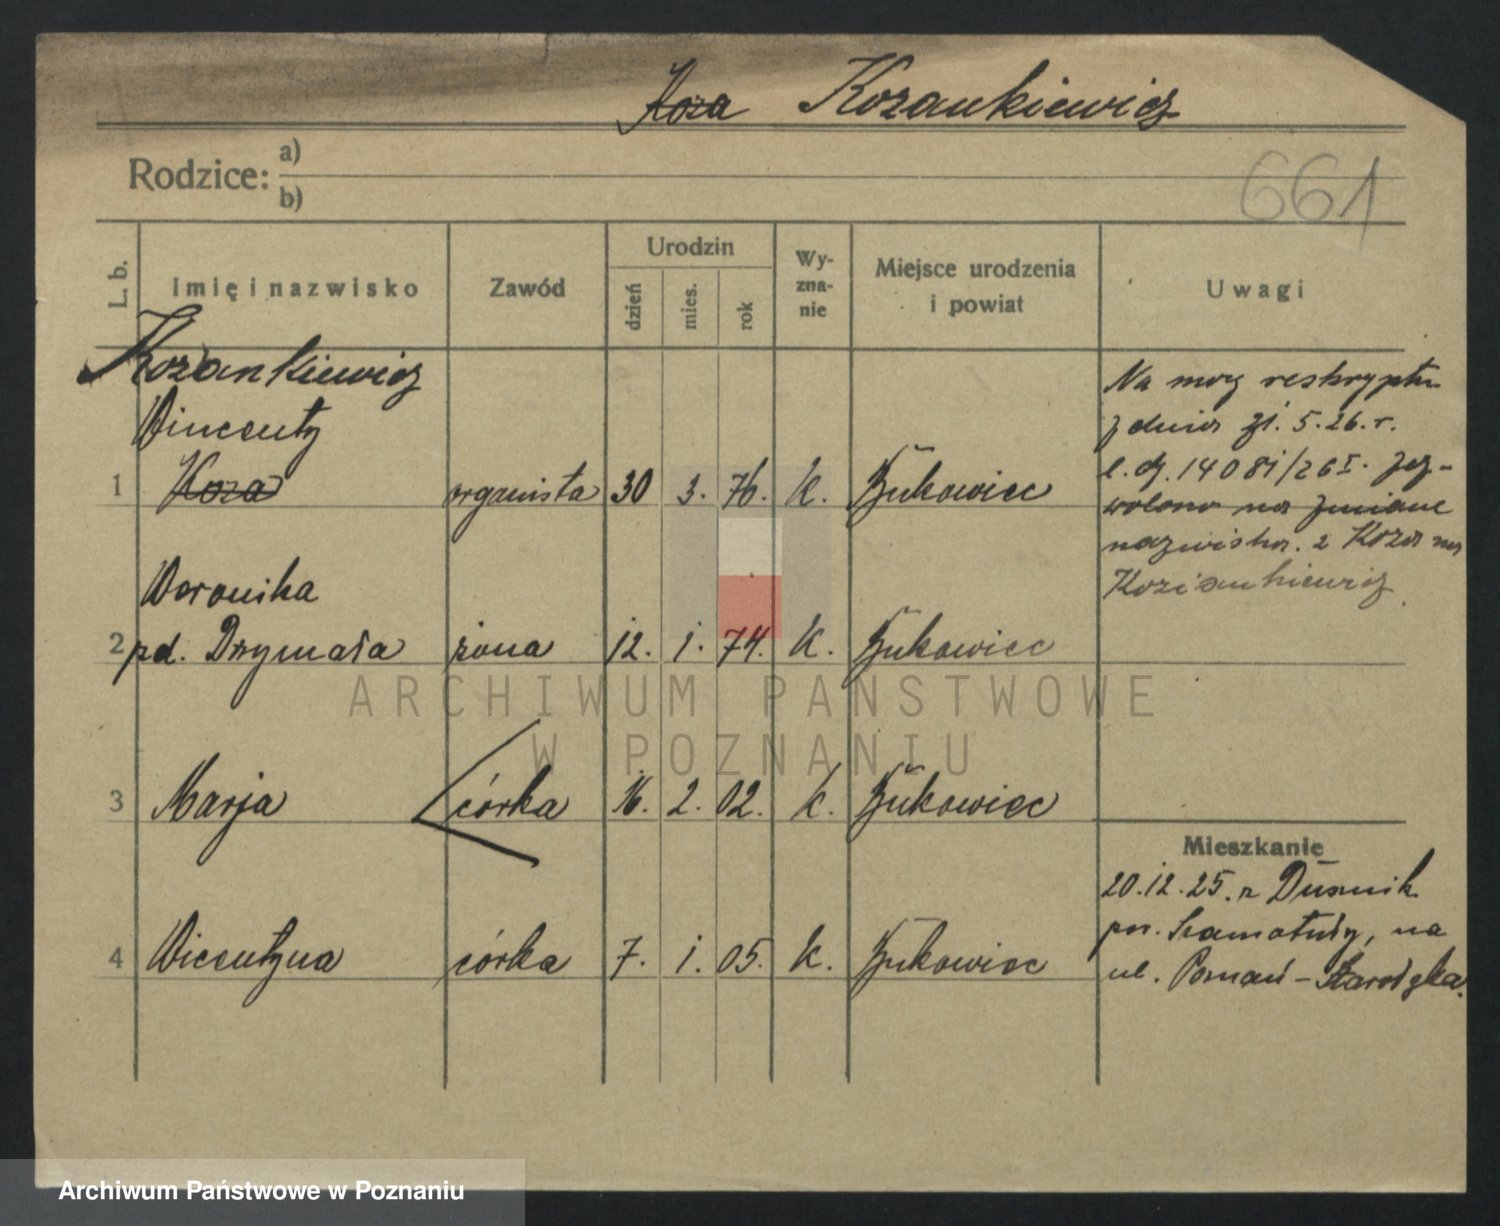 Koza Kozankiewicz
Rodzice: a)
b)
661
L. b.
Imię i nazwisko
Zawód
Urodzin
dzień
mies.
rok
Wy-
zna-
nie
Miejsce urodzenia
i powiat
Uwagi
Kozankiewicz
Wincenty
1 Koza organista 30 3. 76. k. Bukowiec
Weronika
2 pd. Drzymała żona 12. 1. 74. k. Bukowiec
3 Marja córka 16. 2. 02. k. Bukowiec
4 Wicentyna córka 7. 1. 05. k. Bukowiec
Na mocy reskryptu
z dnia 21. 5. 26. r.
l. dz. 14081/26 I. zez-
wolono na zmianę
nazwiska z Koza na
Koziankiewicz
Mieszkanie
20.12.25. z Dusznik
pow. Szamotuły, na
ul. Poznań - Starołęka.
ARCHIWUM PAŃSTWOWE
W POZNANIU
Archiwum Państwowe w Poznaniu